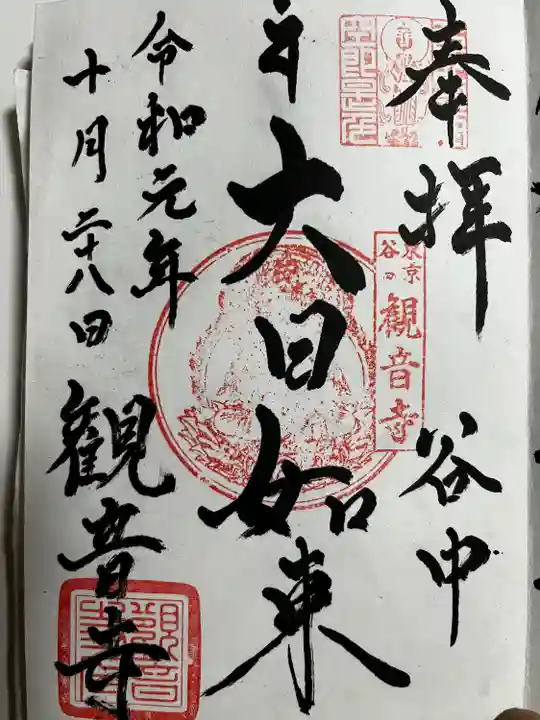 奉拝
谷中
大日如来
令和元年
十月二十八日
観音寺
東京
谷中
観音寺
觀音寺